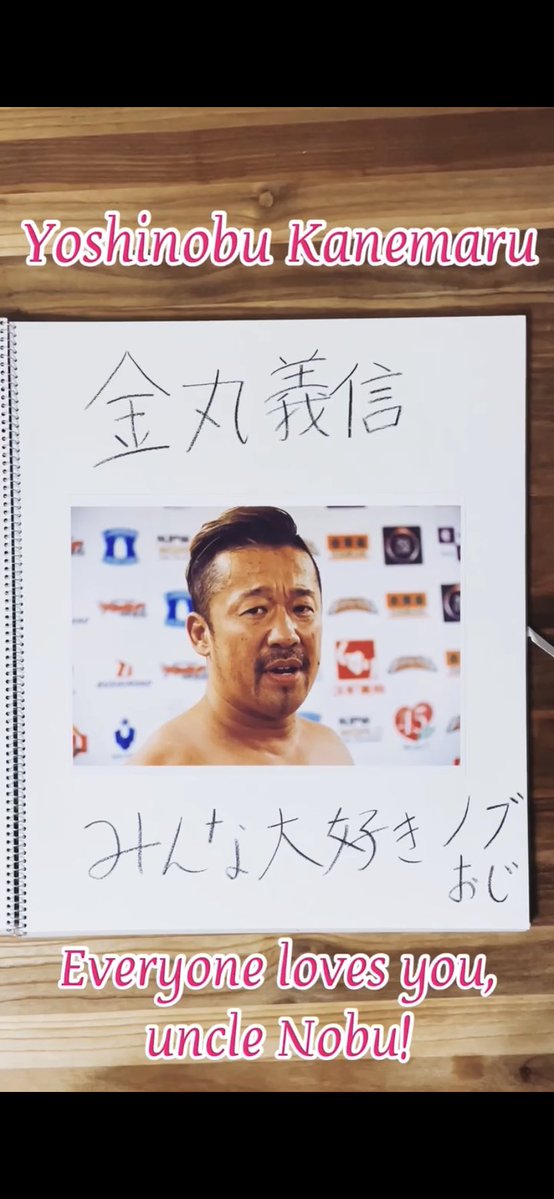 Yoshinobu Kanemaru
金丸義信
みんな大好きノブ
おじ
Everyone loves you,
uncle Nobu!